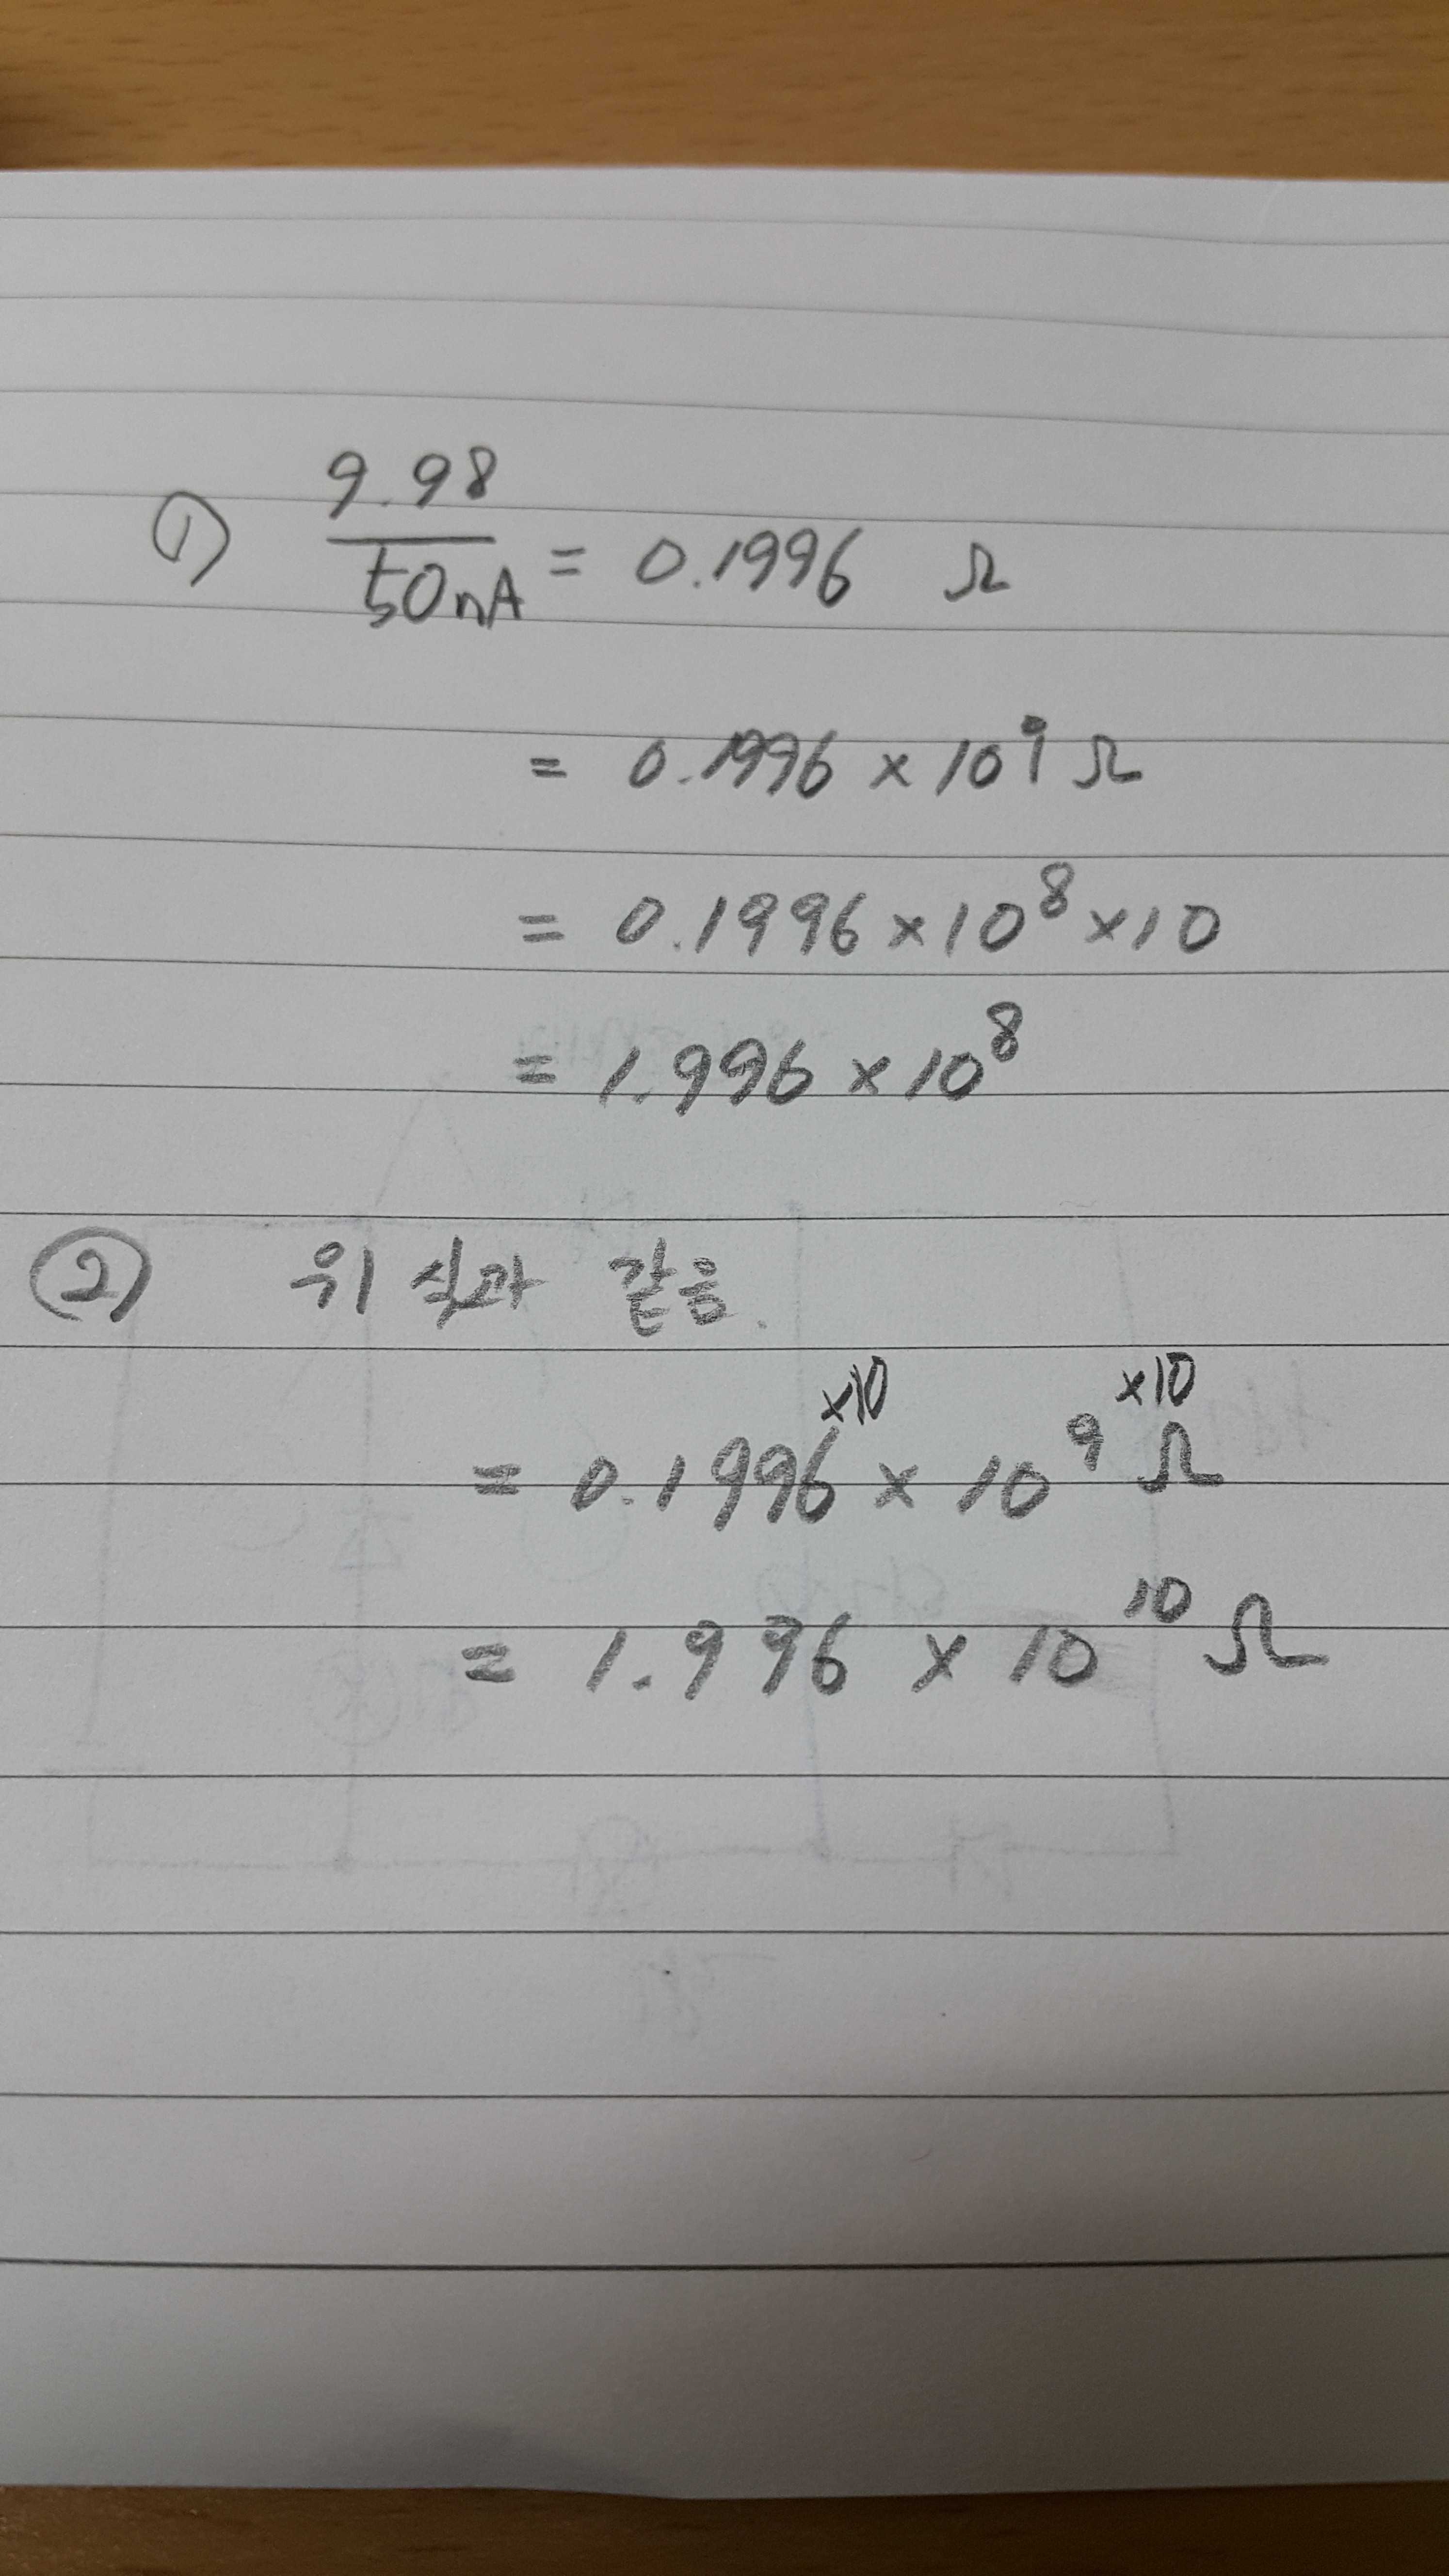 ① 9.98
50nA = 0.1996 Ω
= 0.1996 × 10⁹ Ω
= 0.1996 × 10⁸ × 10
= 1.996 × 10⁸
② 위 식과 같음.
×10 ×10
= 0.1996 × 10⁹ Ω
= 1.996 × 10¹⁰ Ω